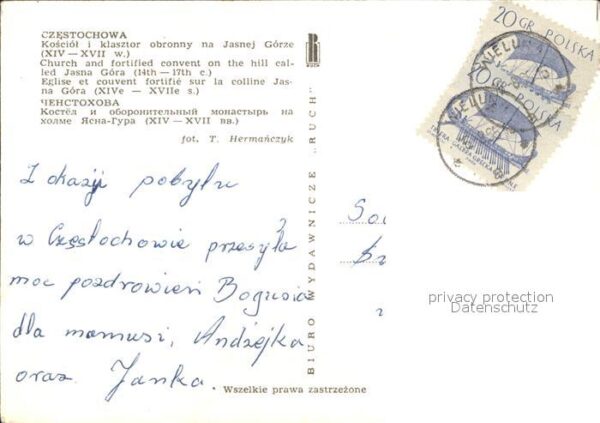 CZĘSTOCHOWA
Kościół i klasztor obronny na Jasnej Górze
(XIV — XVII w.)
Church and fortified convent on the hill cal-
led Jasna Góra (14th — 17th c.)
Eglise et couvent fortifié sur la colline Jas-
na Góra (XIVe — XVIIe s.)
ЧЕНСТОХОВА
Костёл и оборонительный монастырь на
холме Ясна-Гура (XIV — XVII вв.)
fot. T. Hermańczyk
Z okazji pobytu
w Częstochowie przesyła
moc pozdrowień Bogusia
dla mamusi, Andżejka
oraz Janka.
Wszelkie prawa zastrzeżone
BIURO WYDAWNICZE „RUCH"
RUCH
20 GR POLSKA
20 GR POLSKA
privacy protection
Datenschutz